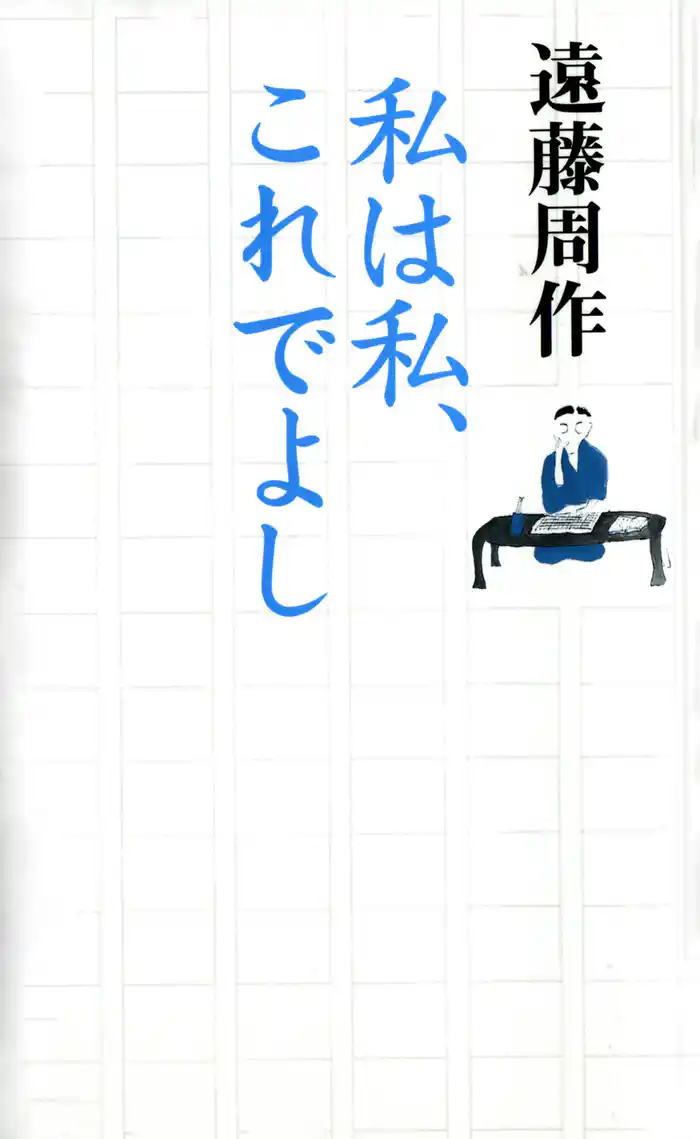 遠藤周作
私は私、
これでよし